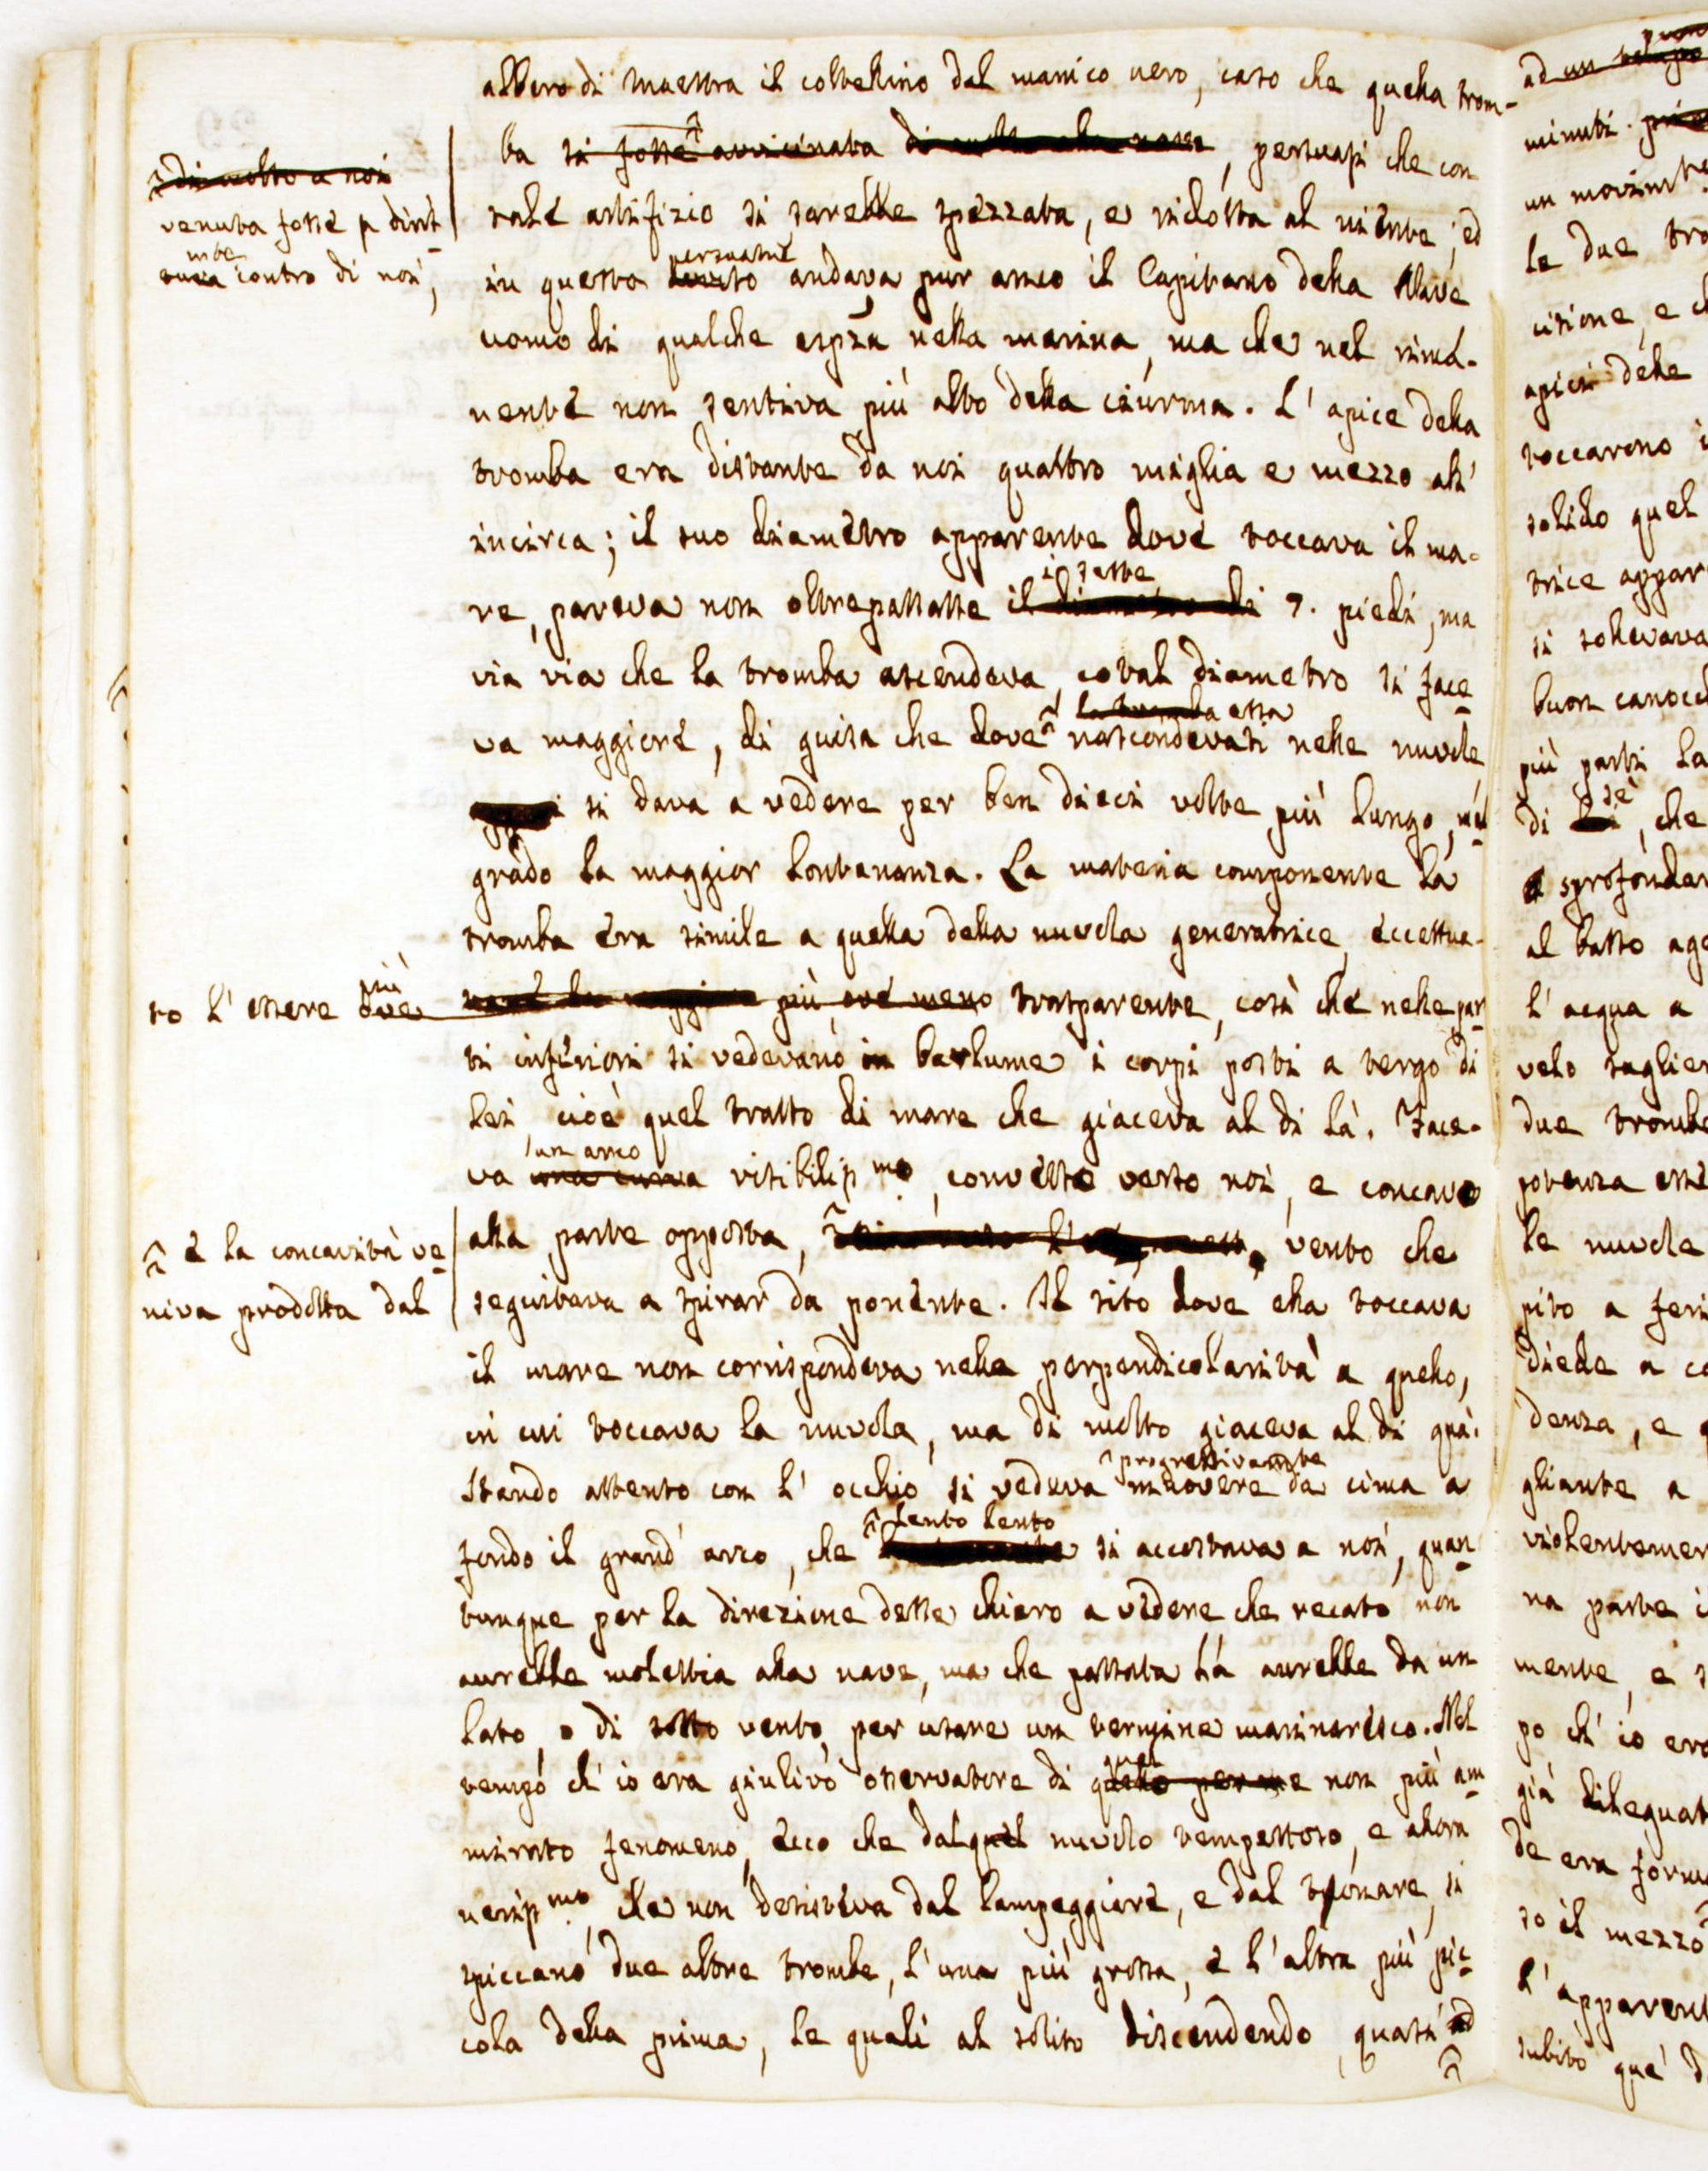 albero di Maestra il coltellino dal manico nero, caso che quella trom-
ba si fosse avvicinata, persuasi che con
tale artifizio si sarebbe spezzata, e ridotta al niente; ed
in questa persuasne andava pur anco il Capitano della Nave
uomo di qualche espza nella marina, ma che nel rima-
nente non sentiva più alto della ciurma. L' apice della
tromba era distante da noi quattro miglia e mezzo all'
incirca; il suo diametro apparente dove toccava il ma-
re, pareva non oltrepassasse i sette il diametro di 7. piedi, ma
via via che la tromba ascendeva, cotal diametro si face
va maggiore, di guisa che dove la tromba essa nascondevasi nelle nuvole
si dava a vedere per ben dieci volte più lungo, mal
grado la maggior lontananza. La materia componente la
tromba era simile a quella della nuvola generatrice, eccettua-
più ove meno trasparente, così che nelle par
ti inferiori si vedevano in barlume i corpi posti a tergo di
lei, cioè quel tratto di mare che giaceva al di là. Face-
va un arco una curva visibilissmo, convesso verso noi, e concavo
alla parte opposta, vento che
seguitava a spirar da ponente. Il sito dove ella toccava
il mare non corrispondeva nella perpendicolarità a quello,
in cui toccava la nuvola, ma di molto giaceva al di quà.
Stando attento con l' occhio si vedeva progressivamte muovere da cima a
fondo il grand' arco, che lento lento si accostava a noi, quan
tunque per la direzione desse chiaro a vedere che recato non
avrebbe molestia alla nave, ma che passata la avrebbe da un
lato, o di sotto vento, per usare un termine marinaresco. Nel
tempo ch' io era giulivo osservatore di quel quello per me non più am
mirato fenomeno, ecco che dal quel nuvolo tempestoso, e allora
nerissmo, che non desisteva dal lampeggiare, e dal tuonare, si
spiccano due altre trombe, l' una più grossa, e l' altra più pic
cola della prima, le quali al solito discendendo, quasi ad
di molto a noi
venuta fosse p dirit
tura mte contro di noi,
to l' essere più ove
e la concavità ve
niva prodotta dal
ad un
minuti.
un movim
le due tro
cisione, e
apici delle
toccarono
solido quel
trice appar
si sollevava
buon canocch
più parti la
di sè, che
sprofondar
al basso
l' acqua a
velo
due trombe
potenza
le nuvole
pito a feri
diede a
denza, e
gliante a
violentemen
na parte
mente, e
po ch' io era
già dileguat
de era form
so il mezzo
l' apparen
subito que'